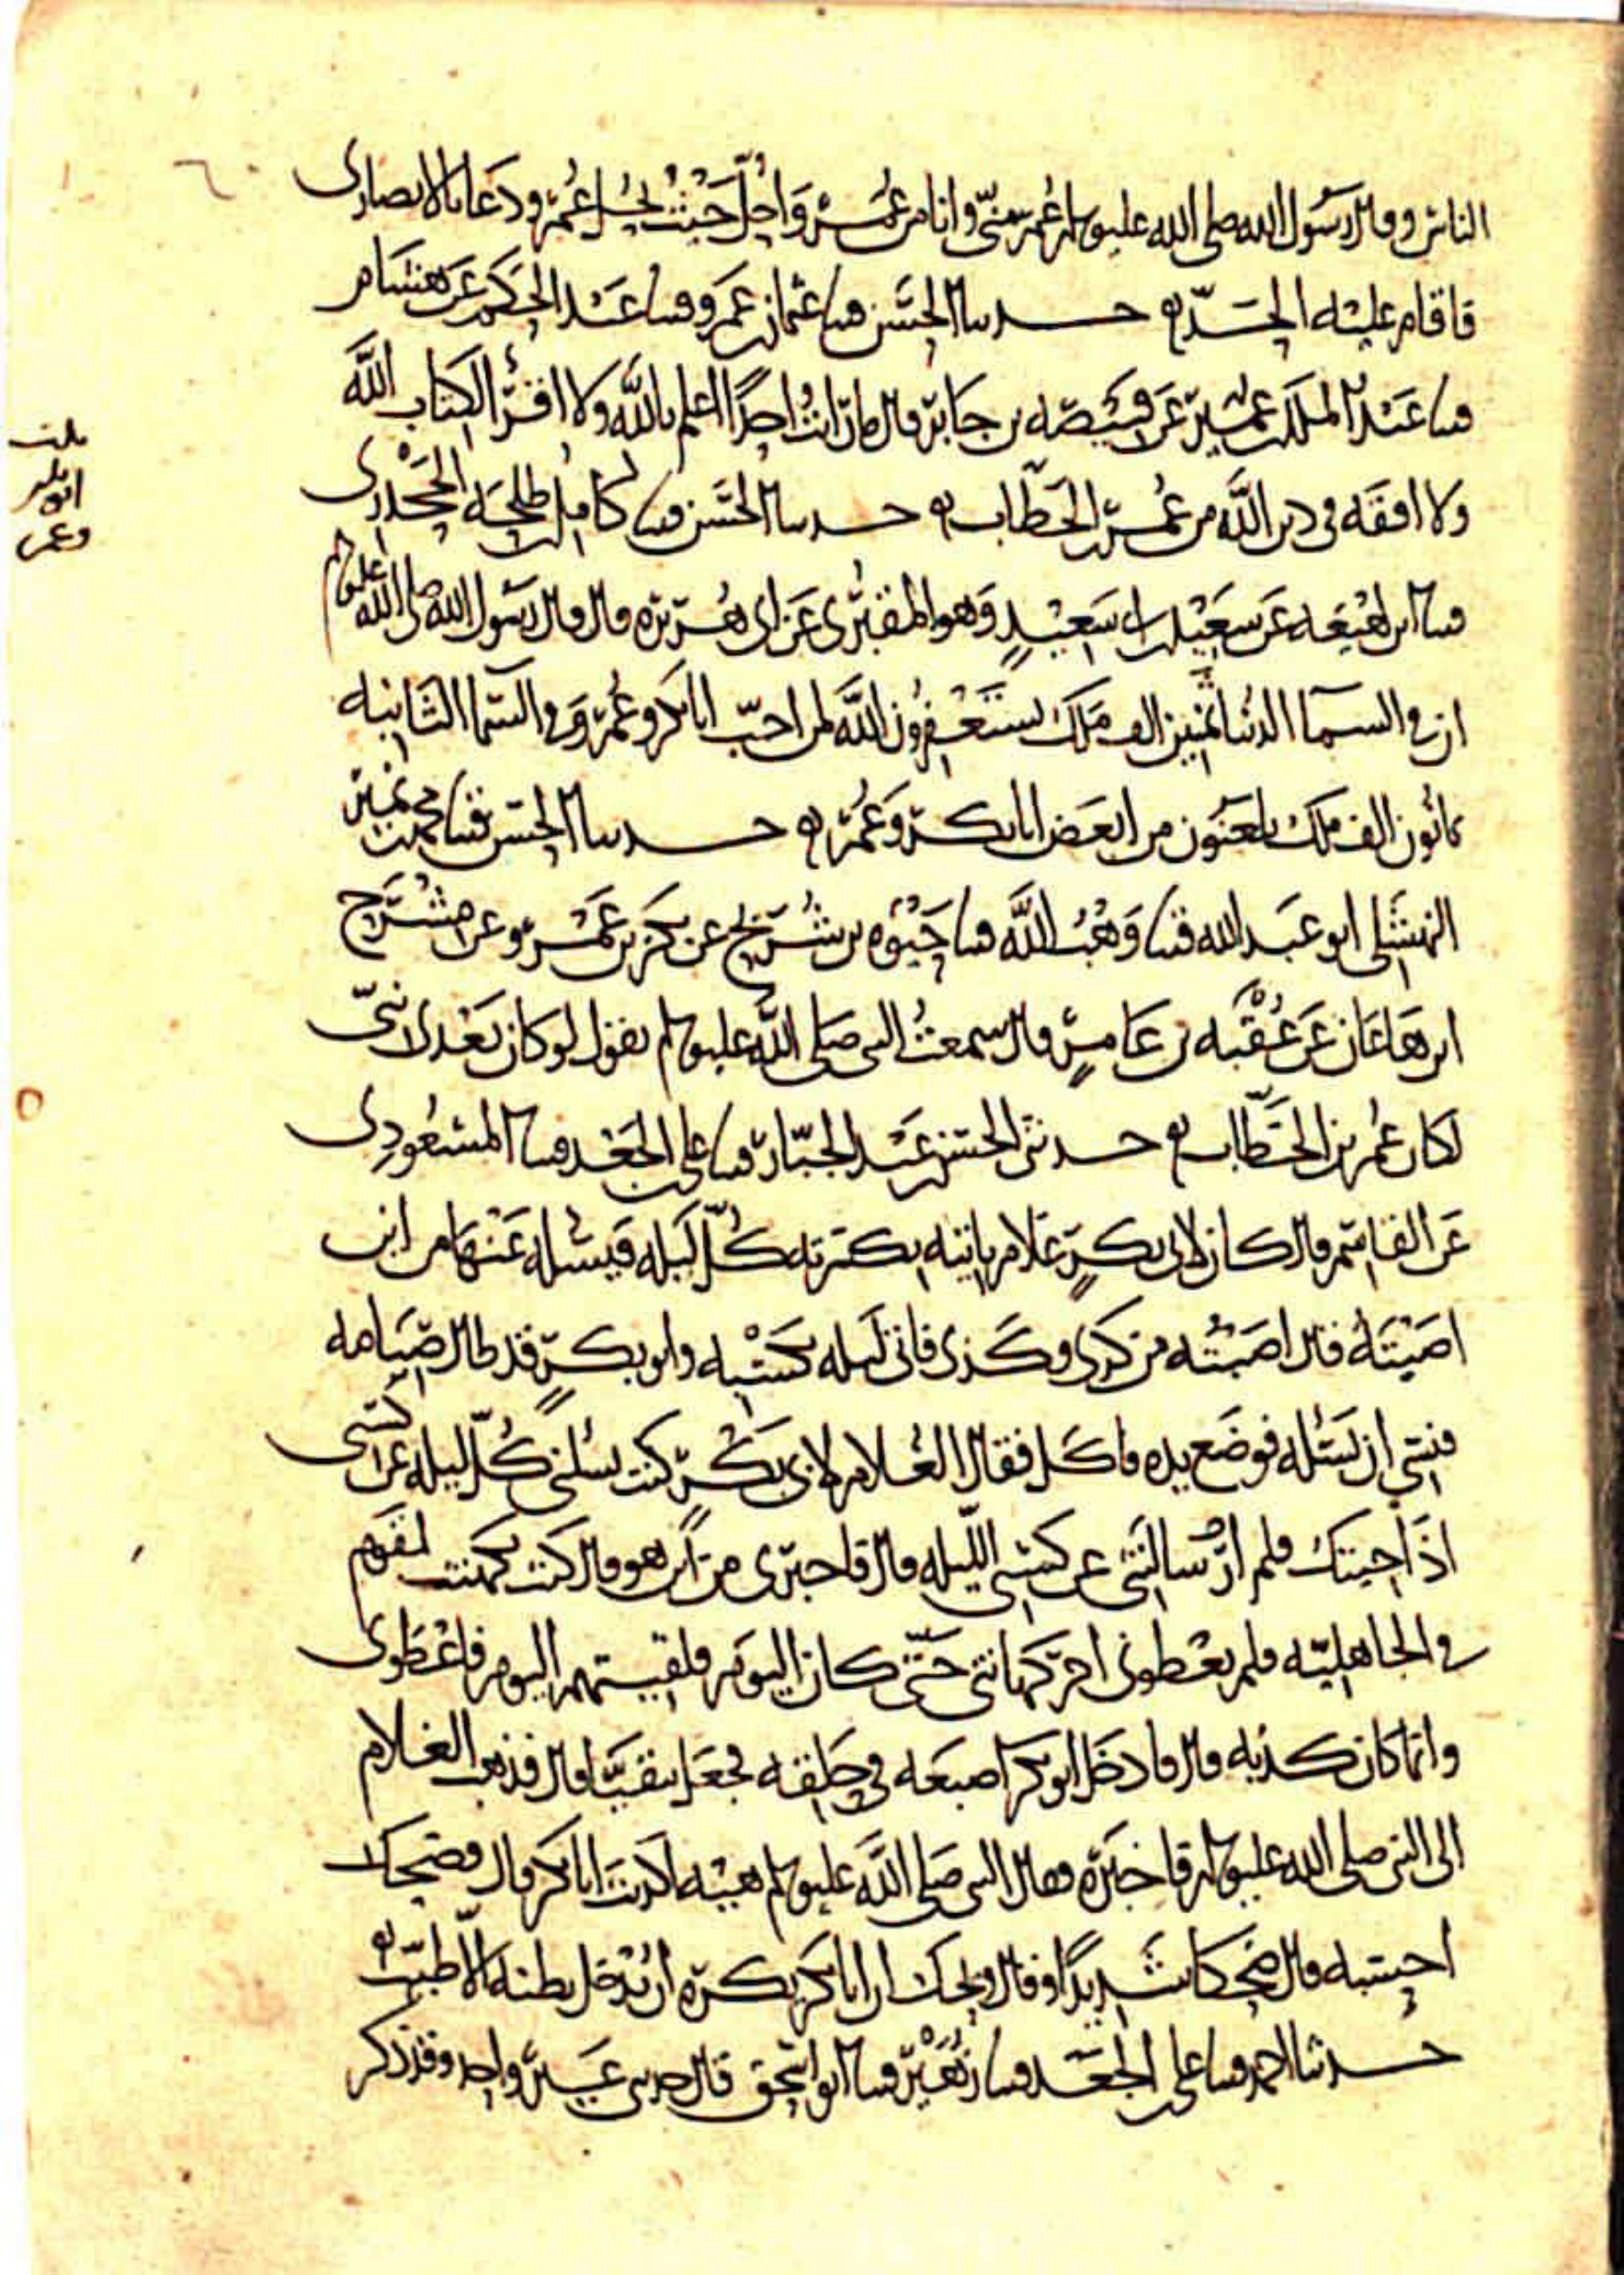 الناس وقال رسول الله صلى الله عليه وسلم عمر مني وانا من عمر واحل حيث يحل عمر ودعا بالانصارى
فاقام عليه الحد حدثنا الحسن قثنا عثمان بن عمرو قثنا عبد الحكم عن هشام
قثنا عبد الملك بن عمير عن قبيصة بن جابر قال ما رايت احدا اعلم بالله ولا اقرا لكتاب الله
ولا افقه في دين الله من عمر بن الخطاب حدثنا الحسن قثنا كامل بن طلحه الجحدرى
قثنا ابن لهيعه عن سعيد بن ابي سعيد وهو المقبرى عن ابى هريره قال قال رسول الله صلى الله عليه وسلم
ان في السما الدنيا ثمنين الف ملك يستغفرون الله لمن احب ابا بكر وعمر وفي السما الثانيه
ثمانون الف ملك يلعنون من ابغض ابا بكر وعمر حدثنا الحسن قثنا محمد بن نمير
النهشلى ابو عبد الله قثنا وهب الله قثنا حيوه بن شريح عن بكر بن عمرو عن مشرح
ابن هاعان عن عقبه بن عامر قال سمعت النبى صلى الله عليه وسلم يقول لو كان بعدى نبى
لكان عمر بن الخطاب حدثنى الحسن بن عبد الجبار قثنا على بن الجعد قثنا المسعودى
عن القاسم قال كان لابى بكر غلام ياتيه بكسرته كل ليله فيسله عنها من اين
اصبته فقال اصبته من كذى وكذى فاتى ليله بكسبه وابو بكر قد طال صيامه
فنسى ان يسئله فوضع يده فاكل فقال الغلام لابى بكر كنت تسلنى كل ليله عن كسبى
اذا جيتك فلم ارك سالتنى عن كسبى الليله قال فاخبرنى من اين هو قال كنت تكهنت لقوم
في الجاهليه فلم يعطونى اجر كهانتى حتى كان اليوم فلقيتهم اليوم فاعطونى
وانما كان كذبه قال فادخل ابو بكر اصبعه في حلقه فجعل يتقيا قال فذهب الغلام
الى النبى صلى الله عليه وسلم فاخبره فقال النبى صلى الله عليه وسلم هيه اكذبت ابا بكر قال فضحك
احسبه قال ضحكا شديدا وقال ويحك ان ابا بكر يكره ان يدخل بطنه الا طيب
حدثنا احمد قثنا على بن الجعد قثنا زهير قثنا ابو اسحق قال حدثنى غير واحد وقد ذكر
ابو بكر
وعمر